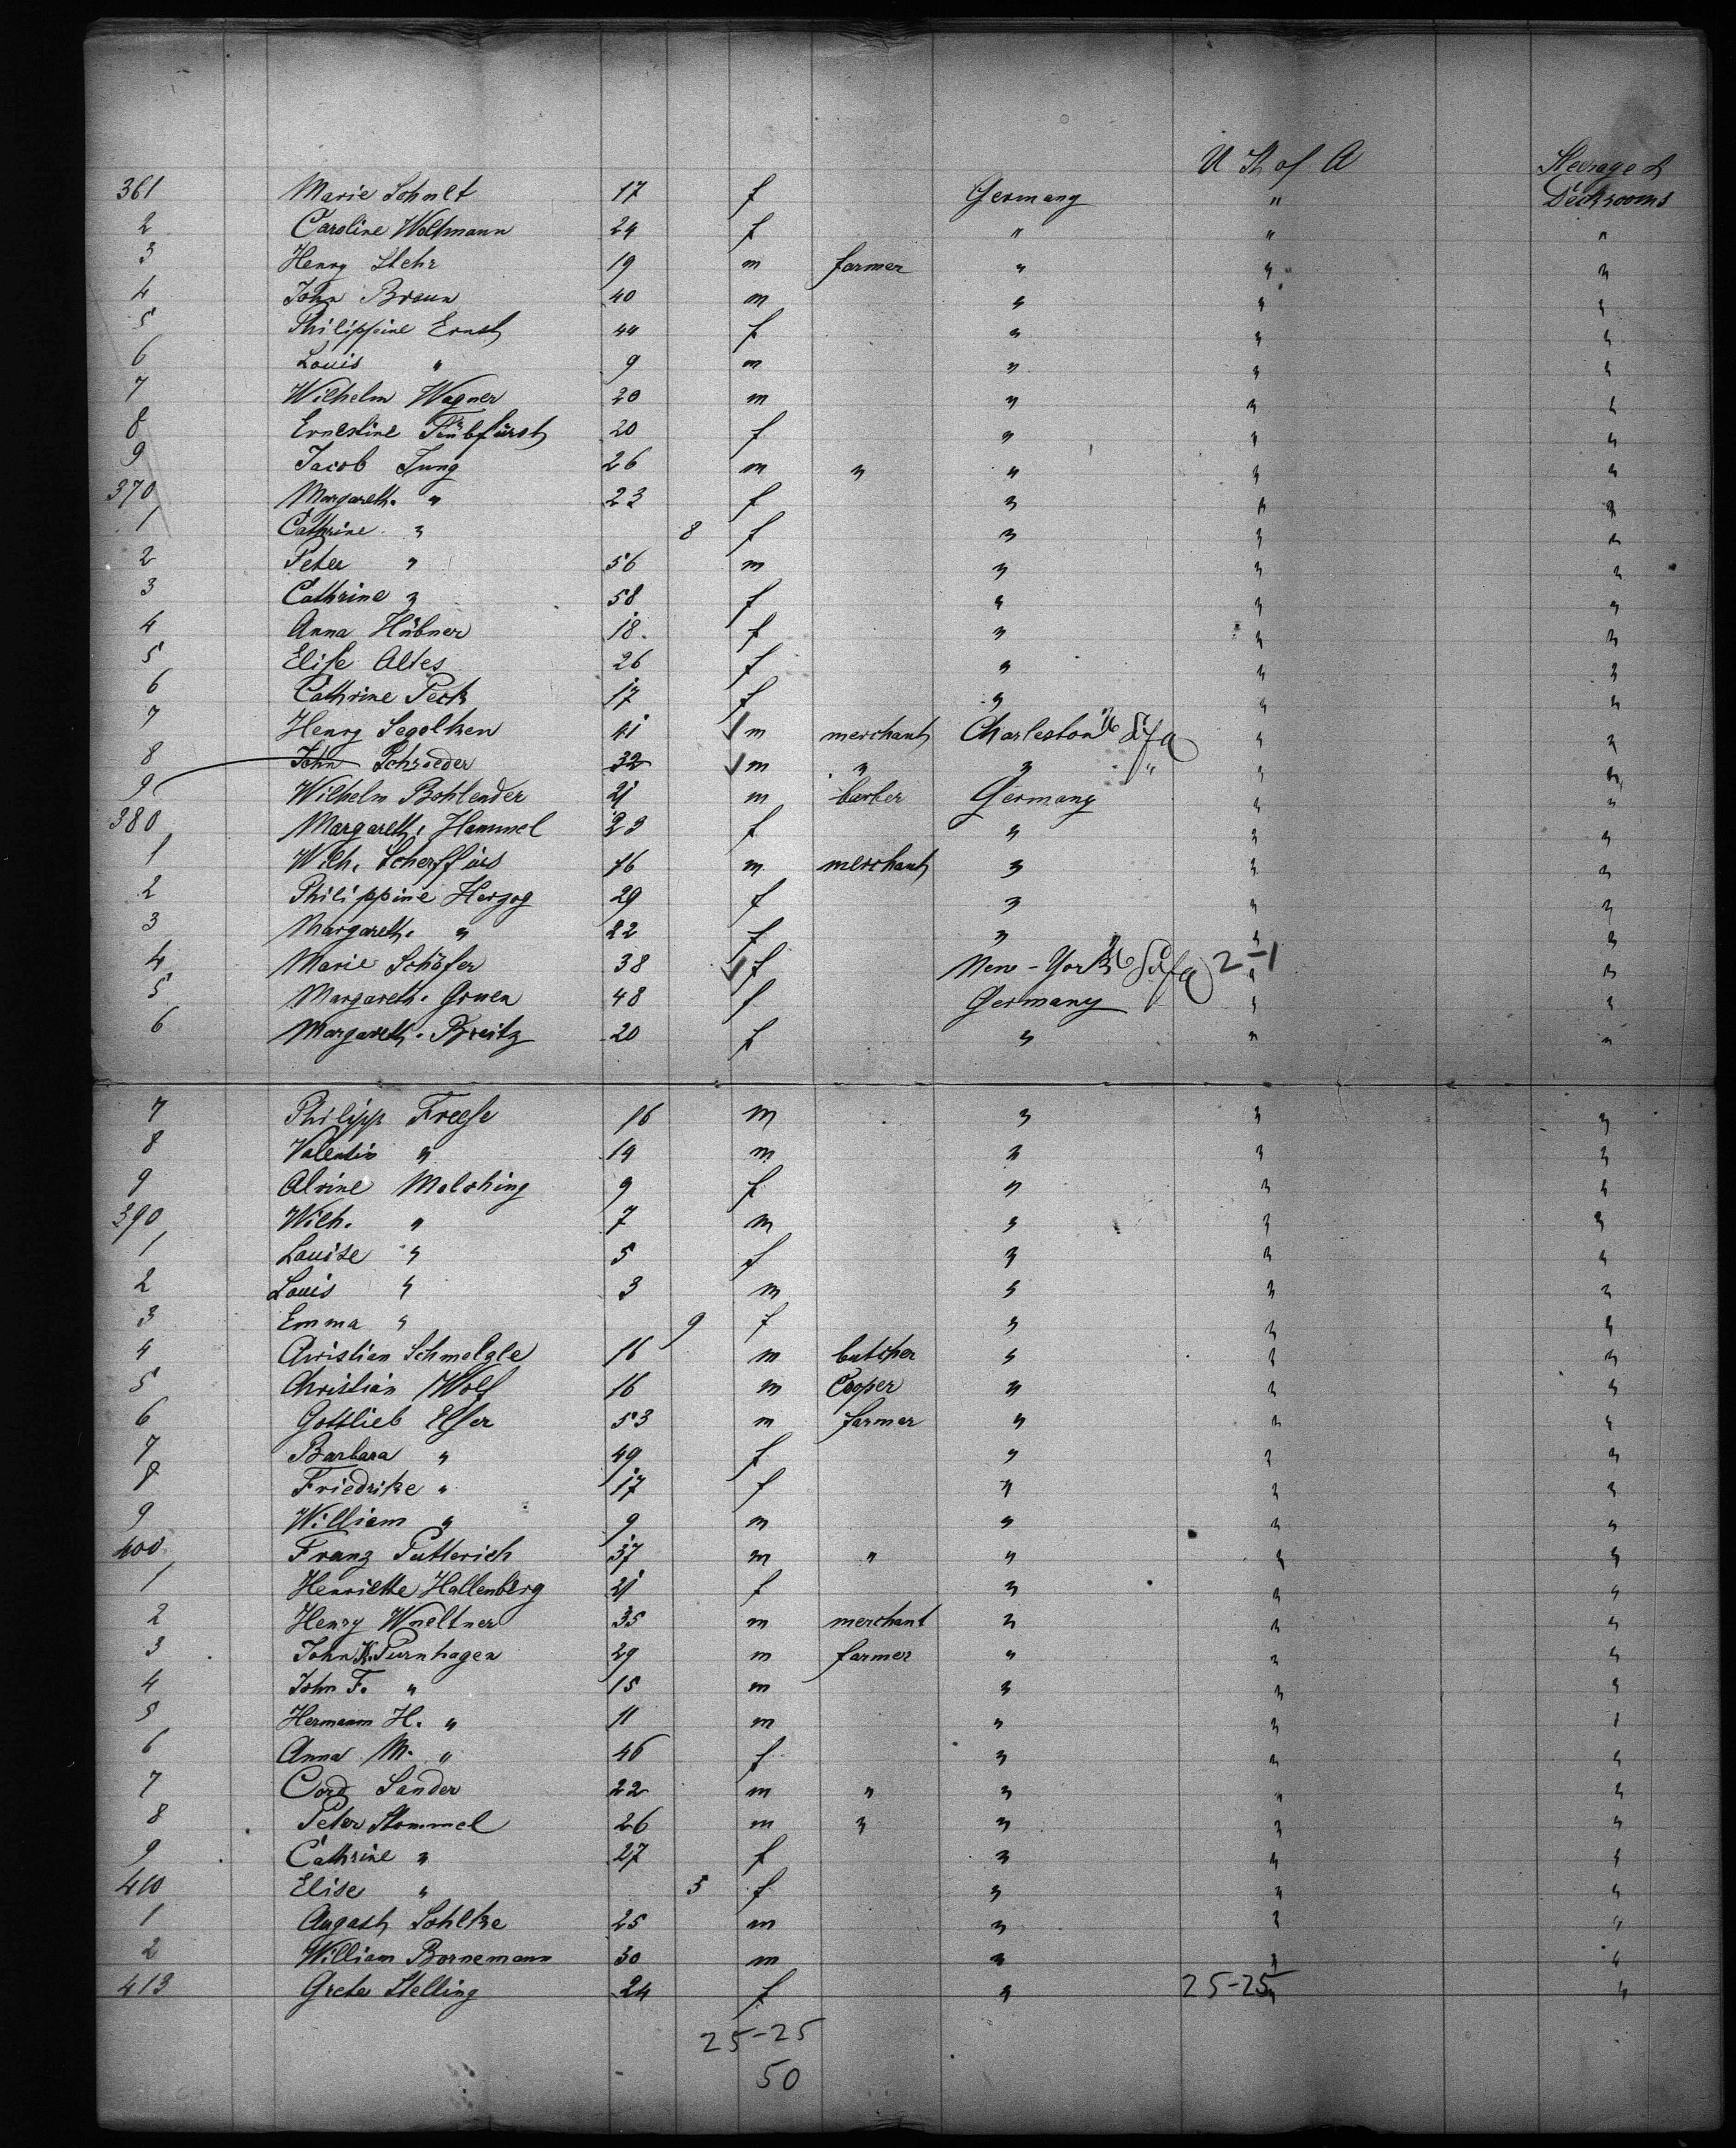 U St of A Steerage &
361 Marie Schult 17 f Germany " Deckrooms
2 Caroline Woltmann 24 f " " "
3 Henry Stehr 19 m farmer " " "
4 John Braun 40 m " " "
5 Philippine Ernst 44 f " " "
6 Louis " 9 m " " "
7 Wilhelm Wagner 20 m " " "
8 Ernestine 20 f " " "
9 Jacob Jung 26 m " " " "
370 Margareth. " 23 f " " "
1 Cathrine " 8 f " " "
2 Peter " 56 m " " "
3 Cathrine " 58 f " " "
4 Anna Hübner 18. f " " "
5 Elise Altes 26 f " " "
6 Cathrine Peck 17 f " " "
7 Henry Segelken 41 m merchant Charleston " "
8 John Schroeder 32 m " " " " "
9 Wilhelm Bohlender 21 m barber Germany " "
380 Margareth. Hammel 23 f " " "
1 Wilh. Scherffius 16 m merchant " " "
2 Philippine Herzog 29 f " " "
3 Margareth. " 22 f " " "
4 Marie Schäfer 38 f New-York 2-1 " "
5 Margareth. Gruen 48 f Germany " "
6 Margareth. Breitz 20 f " " "
7 Philipp Freese 16 m " " "
8 Valentin " 14 m " " "
9 Alvine Molching 9 f " " "
390 Wilh. " 7 m " " "
1 Louise " 5 f " " "
2 Louis " 3 m " " "
3 Emma " 9 f " " "
4 Christian Schmelzle 16 m butcher " " "
5 Christian Wolf 16 m Cooper " " "
6 Gottlieb Elser 53 m farmer " " "
7 Barbara " 49 f " " "
8 Friedrike " 17 f " " "
9 William " 9 m " " "
400 Franz Putterich 37 m " " " "
1 Henriette Hallenberg 21 f " " "
2 Henry Wueltner 35 m merchant " " "
3 John H. Purnhagen 29 m farmer " " "
4 John F. " 15 m " " "
5 Hermann H. " 11 m " " "
6 Anna M. " 46 f " " "
7 Cord Sander 22 m " " " "
8 Peter Stommel 26 m " " " "
9 Cathrine " 27 f " " "
410 Elise " 5 f " " "
1 August Sohlke 25 m " " "
2 William Bornemann 30 m " " "
413 Grete Stelling 24 f " 25-25 " "
25-25
50